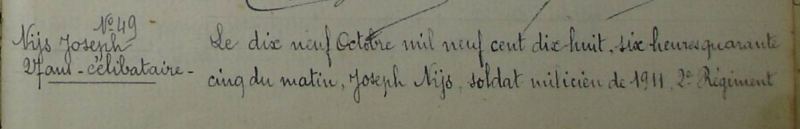 Nº 49
Nijs Joseph
27 ans - célibataire -
Le dix neuf Octobre mil neuf cent dix-huit, six heures quarante
cinq du matin, Joseph Nijs, soldat milicien de 1911, 2e Régiment